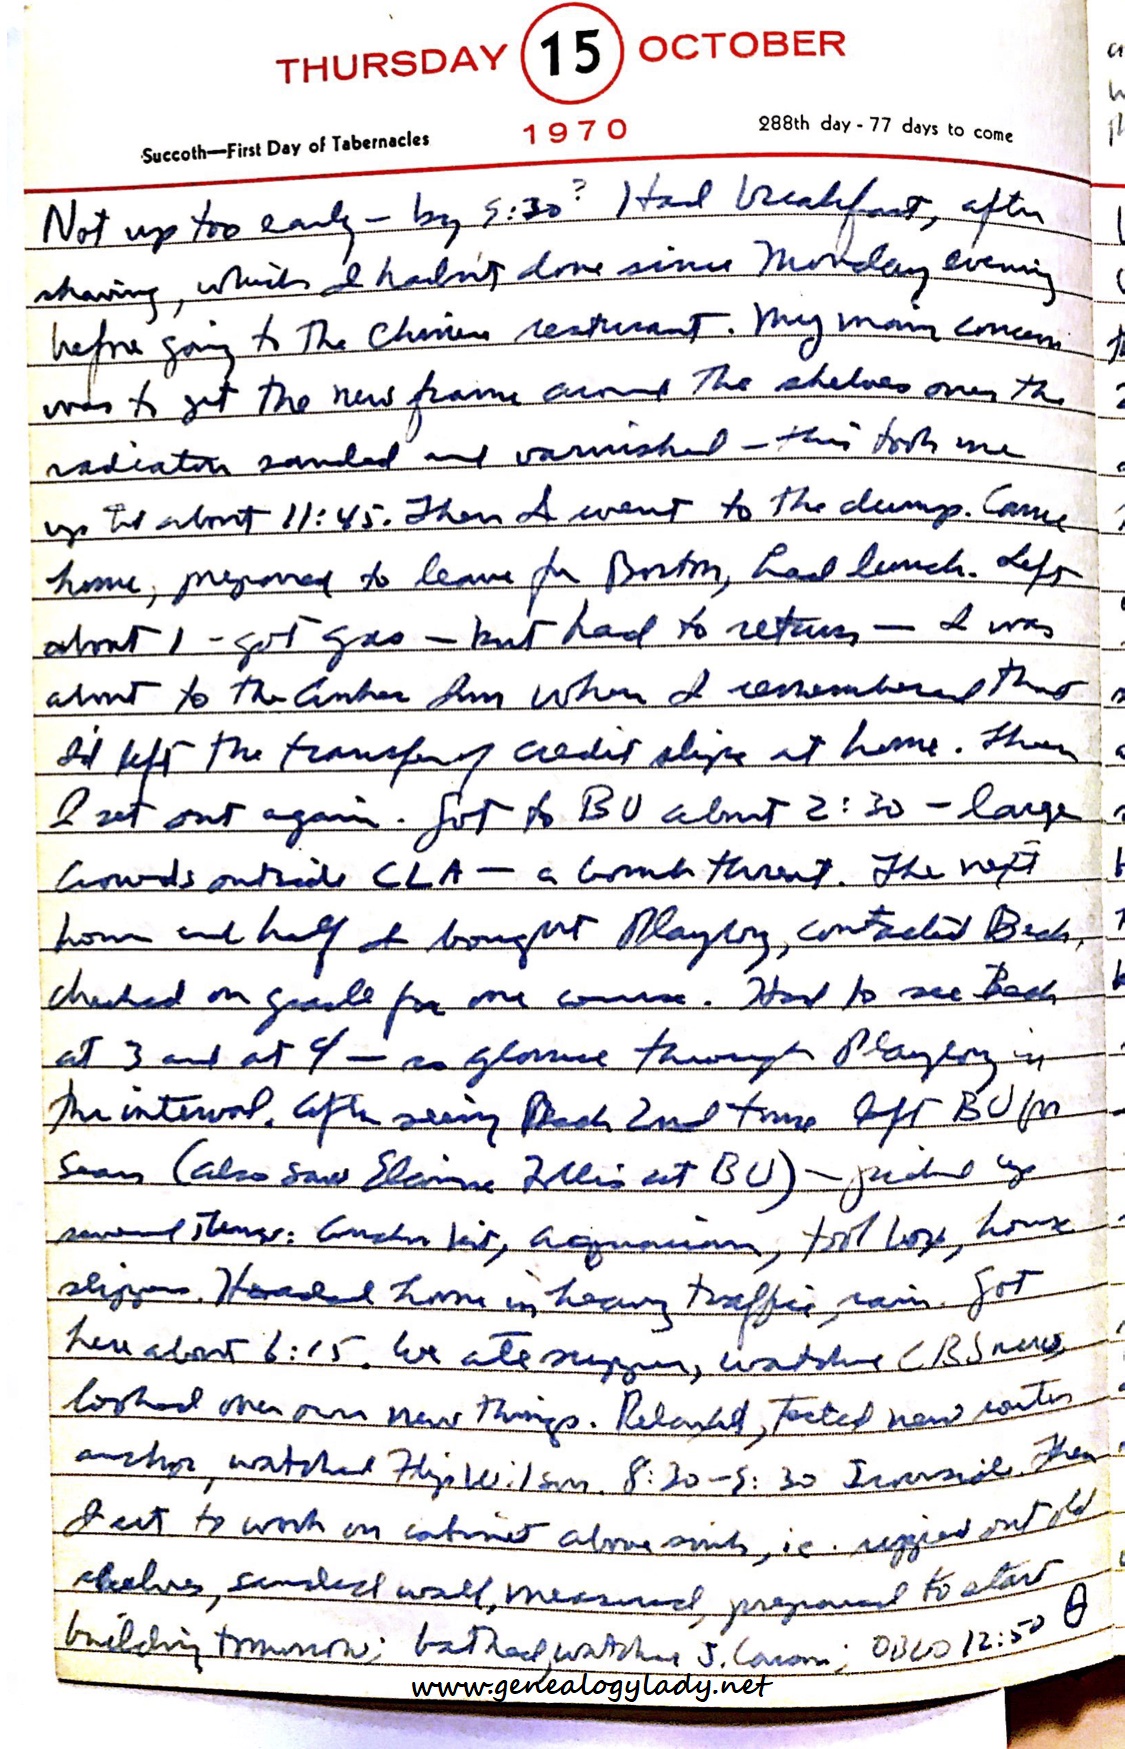 THURSDAY 15 OCTOBER
1970
Succoth—First Day of Tabernacles
288th day - 77 days to come
Not up too early – by 9:30? Had breakfast, after
shaving, which I hadn't done since Monday evening
before going to the Chinese resturant. My main concern
was to get the new frame around the shelves over the
radiator sanded and varnished – this took me
up til about 11:45. Then I went to the dump. Came
home, prepared to leave for Boston, had lunch. Left
about 1 – got gas – but had to return – I was
about to the Inn when I remembered that
I'd left the transfer of credit slips at home. Then
I set out again. Got to BU about 2:30 – large
crowds outside CLA – a bomb threat. The next
hour and half I bought Playboy, contacted Beck,
checked on grade for one course. Had to see Beck
at 3 and at 4 – so glance through Playboy in
the interval. After seeing Beck 2nd time left BU for
Sears (also saw Elaine at BU) – picked up
several things: anchor kit, acquarium, tool box, house
slippers. Headed home in heavy traffic, rain. Got
here about 6:15. We ate supper, watched CBS news,
looked over our new things. Relaxed, tested new
anchor, watched Flip Wilson. 8:30–9:30 Ironside. Then
I set to work on cabinet above sink, ie. ripped out old
shelves, sanded wall, measured, prepared to start
building tomorrow; bathed, watched J. Carson; 12:50 θ
www.genealogylady.net